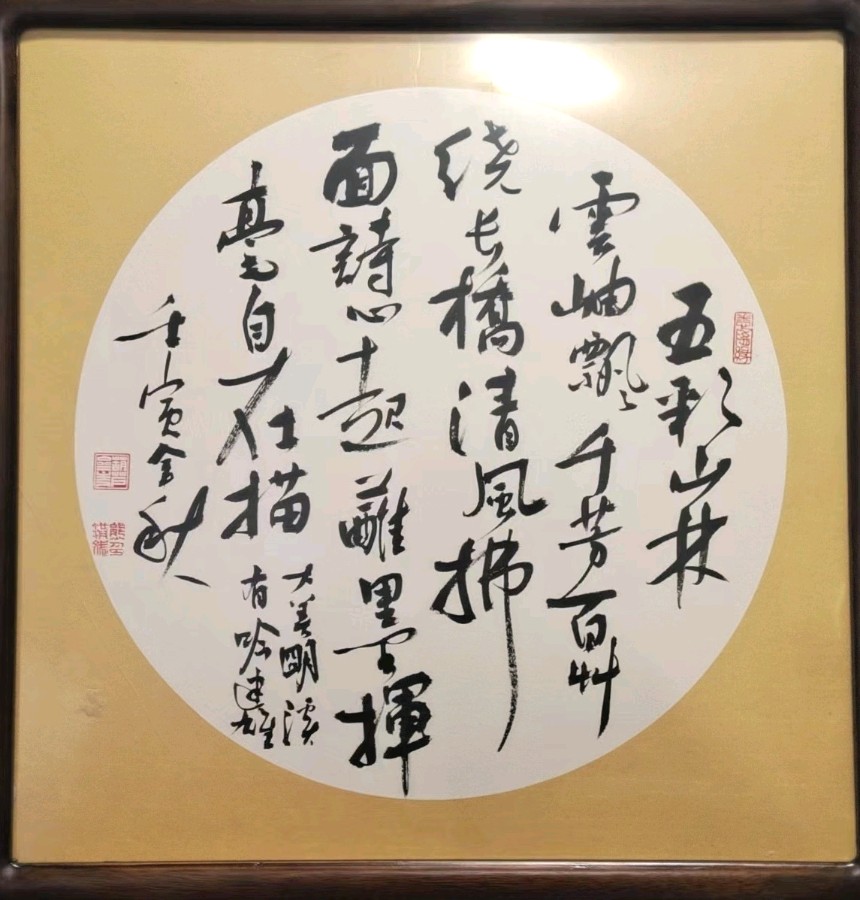 五彩山林
雲岫飄千芳百艸
绕长橋清風拂
面詩心起蘸墨揮
毫自在描
大美明溪
有吟建雄
壬寅金秋